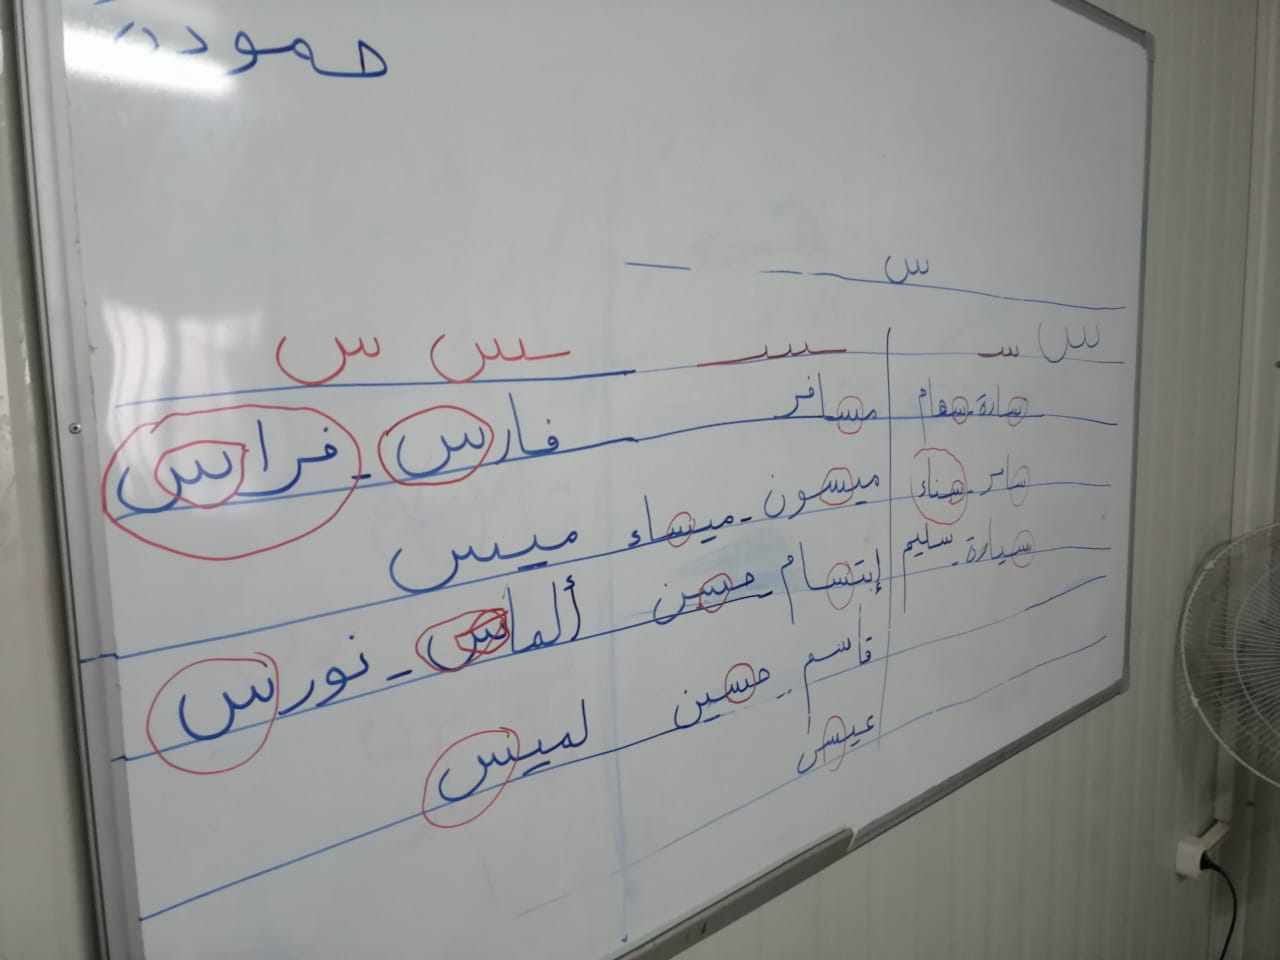 حمودة
س
س سـ ـسـ ـس س
سارة - سهام مسافر فارس - فراس
سناء ميسون - ميساء ميس
سيارة - سليم إبتسام - حسن ألماس - نورس
قاسم - حسين لميس
عيسى